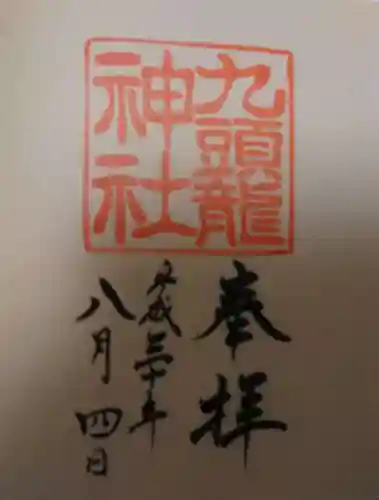 九頭龍
神社
奉拝
平成三十年
八月四日